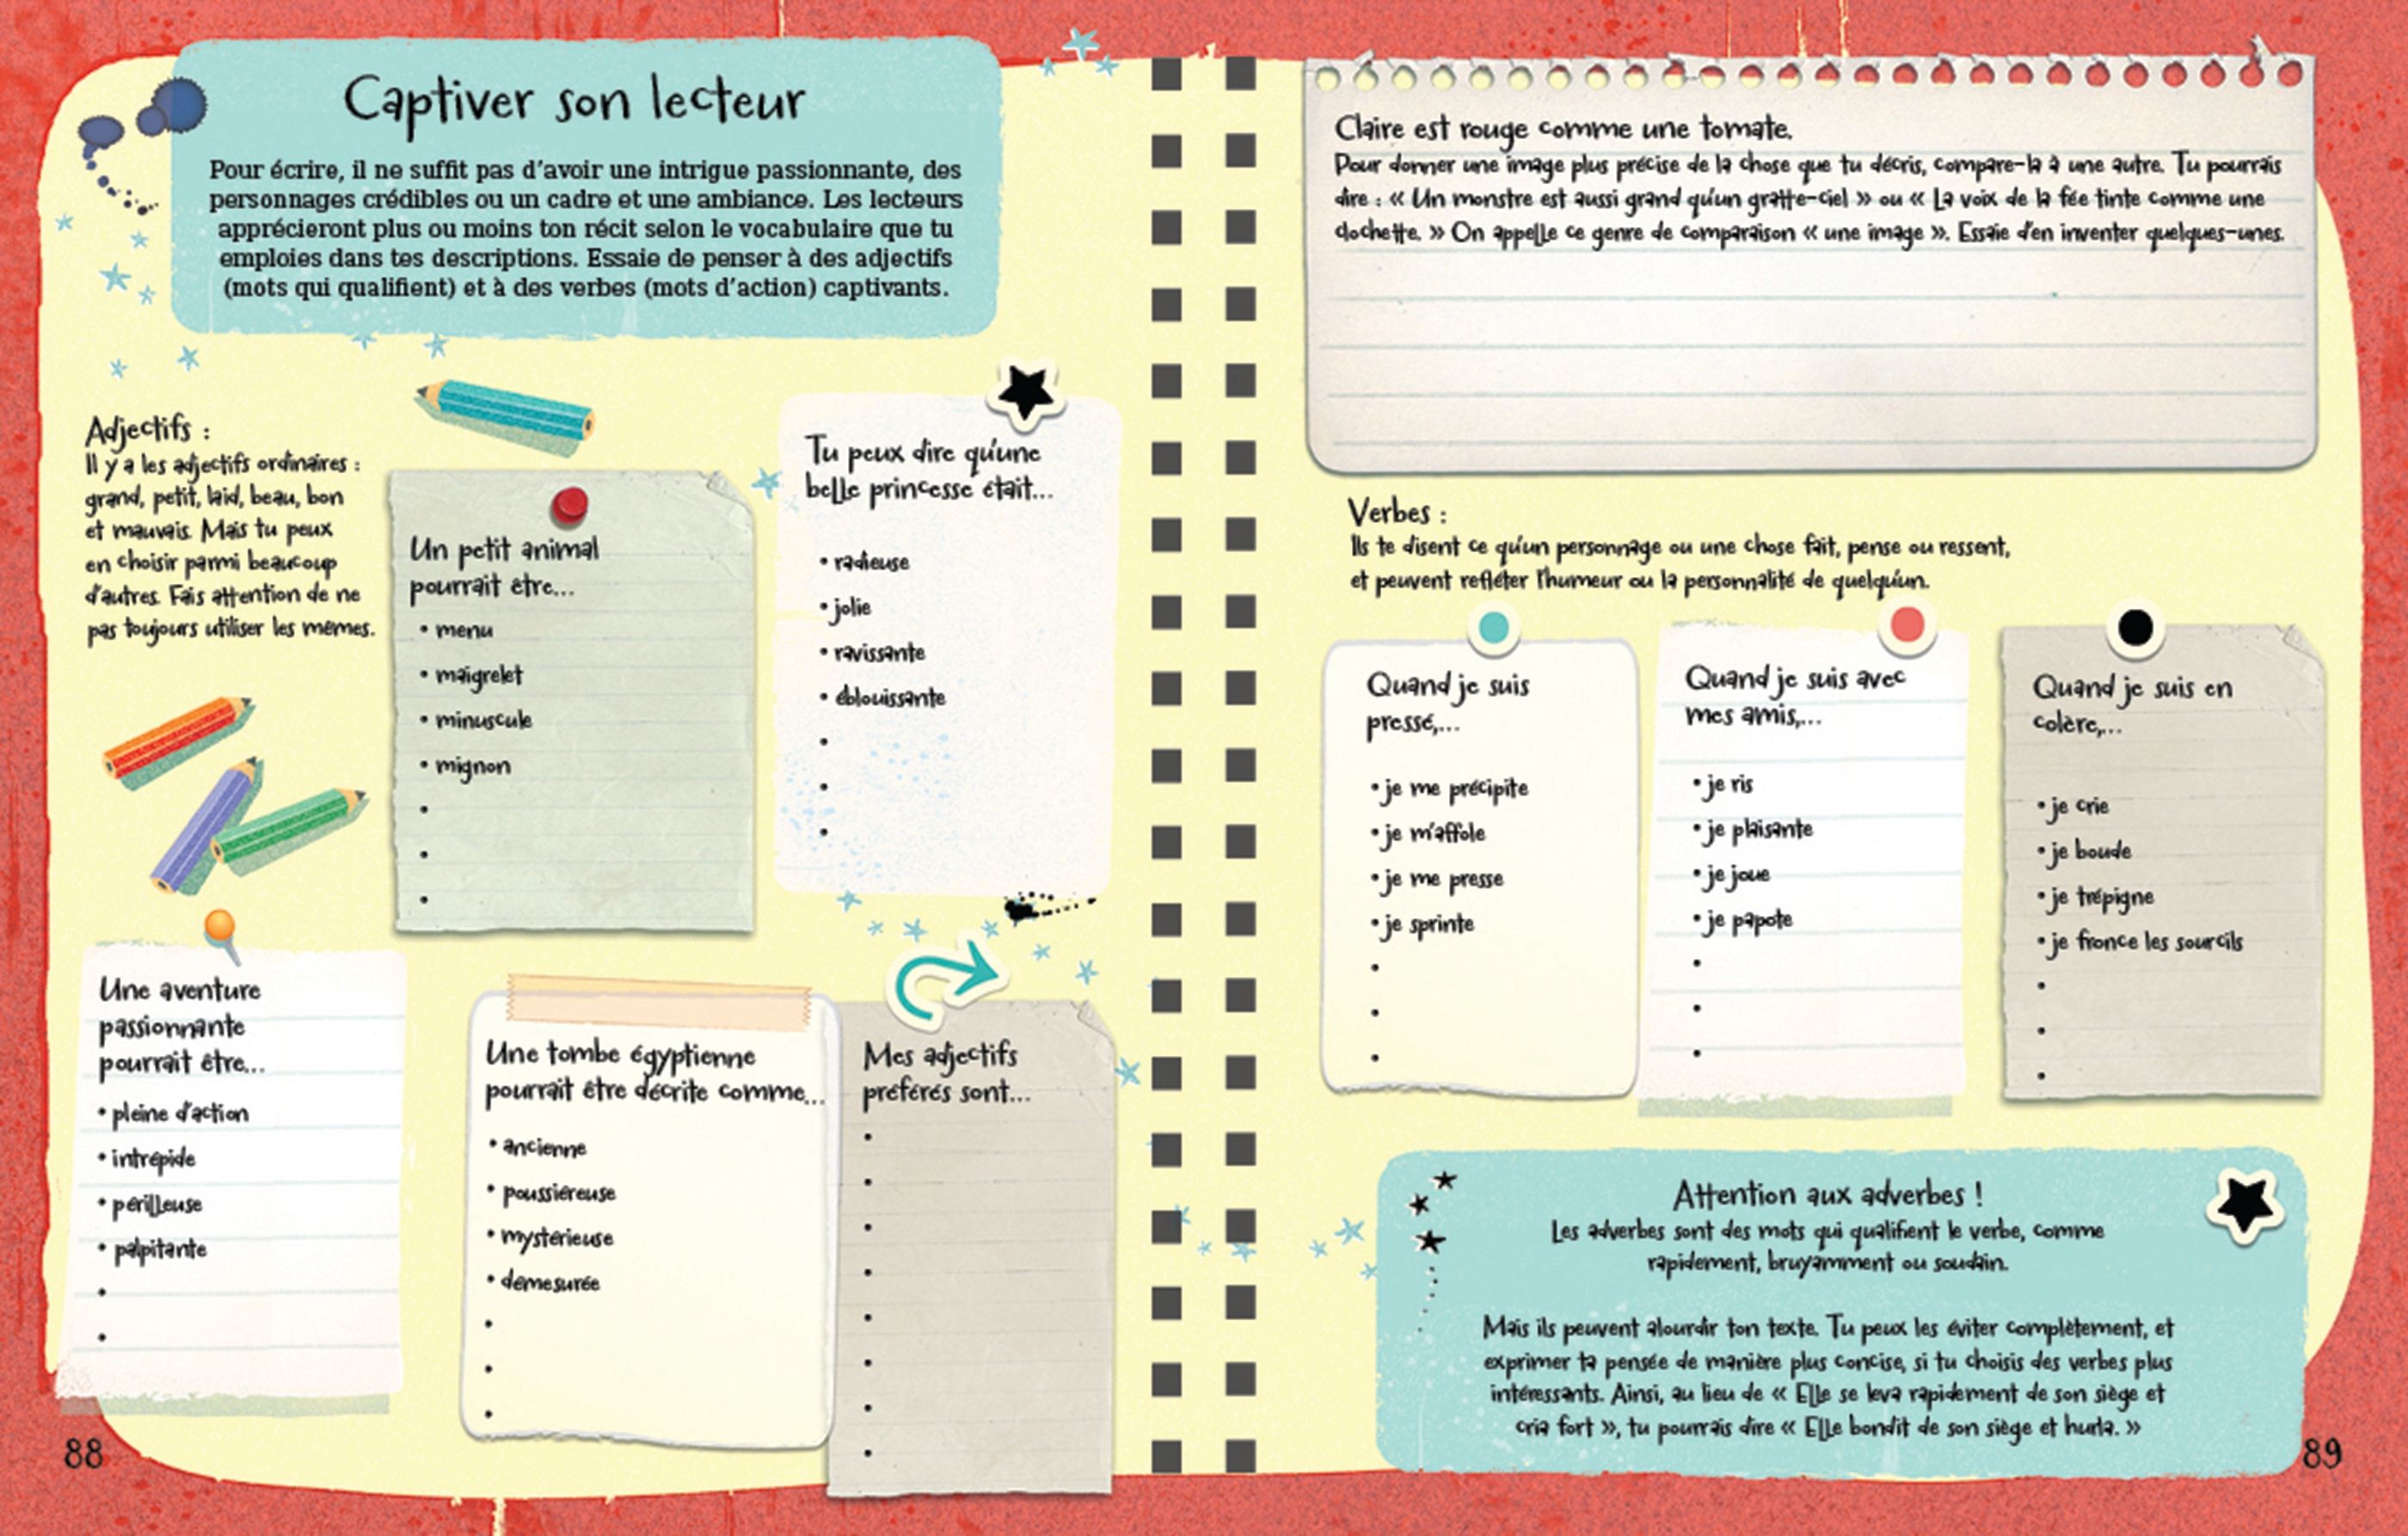 Captiver son lecteur
Pour écrire, il ne suffit pas d'avoir une intrigue passionnante, des
personnages crédibles ou un cadre et une ambiance. Les lecteurs
apprécieront plus ou moins ton récit selon le vocabulaire que tu
emploies dans tes descriptions. Essaie de penser à des adjectifs
(mots qui qualifient) et à des verbes (mots d'action) captivants.
Adjectifs :
Il y a les adjectifs ordinaires :
grand, petit, laid, beau, bon
et mauvais. Mais tu peux
en choisir parmi beaucoup
d'autres. Fais attention de ne
pas toujours utiliser les mêmes.
Un petit animal
pourrait être...
• menu
• maigrelet
• minuscule
• mignon
•
•
•
Tu peux dire qu'une
belle princesse était...
• radieuse
• jolie
• ravissante
• éblouissante
•
•
•
Une aventure
passionnante
pourrait être...
• pleine d'action
• intrépide
• périlleuse
• palpitante
•
•
Une tombe égyptienne
pourrait être décrite comme...
• ancienne
• poussiéreuse
• mystérieuse
• démesurée
•
•
•
Mes adjectifs
préférés sont...
•
•
•
•
•
•
•
•
88
Claire est rouge comme une tomate.
Pour donner une image plus précise de la chose que tu décris, compare-la à une autre. Tu pourrais
dire : « Un monstre est aussi grand qu'un gratte-ciel » ou « La voix de la fée tinte comme une
clochette. » On appelle ce genre de comparaison « une image ». Essaie d'en inventer quelques-unes.
Verbes :
Ils te disent ce qu'un personnage ou une chose fait, pense ou ressent,
et peuvent refléter l'humeur ou la personnalité de quelqu'un.
Quand je suis
pressé,...
• je me précipite
• je m'affole
• je me presse
• je sprinte
•
•
•
Quand je suis avec
mes amis,...
• je ris
• je plaisante
• je joue
• je papote
•
•
•
Quand je suis en
colère,...
• je crie
• je boude
• je trépigne
• je fronce les sourcils
•
•
•
Attention aux adverbes !
Les adverbes sont des mots qui qualifient le verbe, comme
rapidement, bruyamment ou soudain.
Mais ils peuvent alourdir ton texte. Tu peux les éviter complètement, et
exprimer ta pensée de manière plus concise, si tu choisis des verbes plus
intéressants. Ainsi, au lieu de « Elle se leva rapidement de son siège et
cria fort », tu pourrais dire « Elle bondit de son siège et hurla. »
89